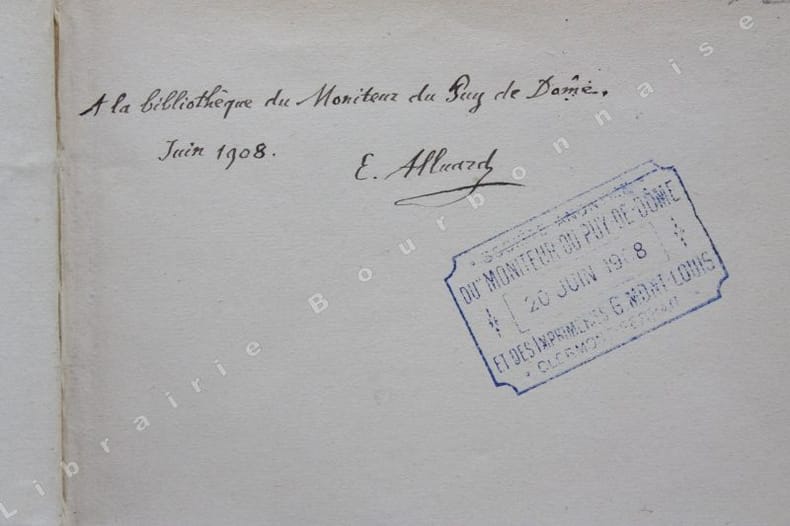 A la bibliothèque du Moniteur du Puy de Dôme.
Juin 1908.
E. Alluard
SOCIÉTÉ ANONYME
DU MONITEUR DU PUY-DE-DÔME
20 JUIN 1908
ET DES IMPRIMERIES G MONT-LOUIS
CLERMONT-FERRAND
Librairie Bourbonnaise